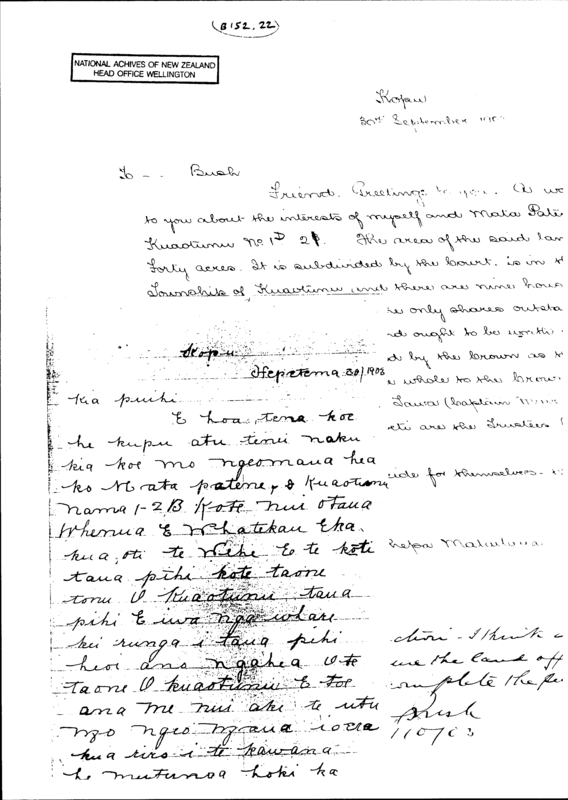 B 152. 22
NATIONAL ACHIVES OF NEW ZEALAND
HEAD OFFICE WELLINGTON
Kopu
30th September
To - - Bush
Friend. Greetings to you. A wo
to you about the interests of myself and Mata Pate
Kuaotunu No 1 2 The area of the said lan
Forty acres. It is subdivided by the Court. is in t
Township of Kuaotunu and there are nine hous
e only shares outsta
d ought to be worth
d by the Crown as t
e whole to the Crow
Tawa (Captain
eti are the Trustees
ide for themselves.
hepa
Kopu
Hepetema 30/1903
Kia puihi
E hoa, tena koe
he kupu atu tenei naku
kia koe mo nga hea
ko Mata patene, o Kuaotunu
nama 1-2 B Ko te nui o taua
Whenua E Whatekau Eka.
kua, oti te Wehe E te koti
taua pihi ko te taone
tonu O Kuaotunu, taua
pihi E iwa nga whare
kei runga i taua pihi
heoi ano ngahea O te
taone O kuaotunu E toe
ana me nui ake te utu
kua riro i te kawana
he mutunga hoki ka
I think
the land off
omplete the pu
Bush